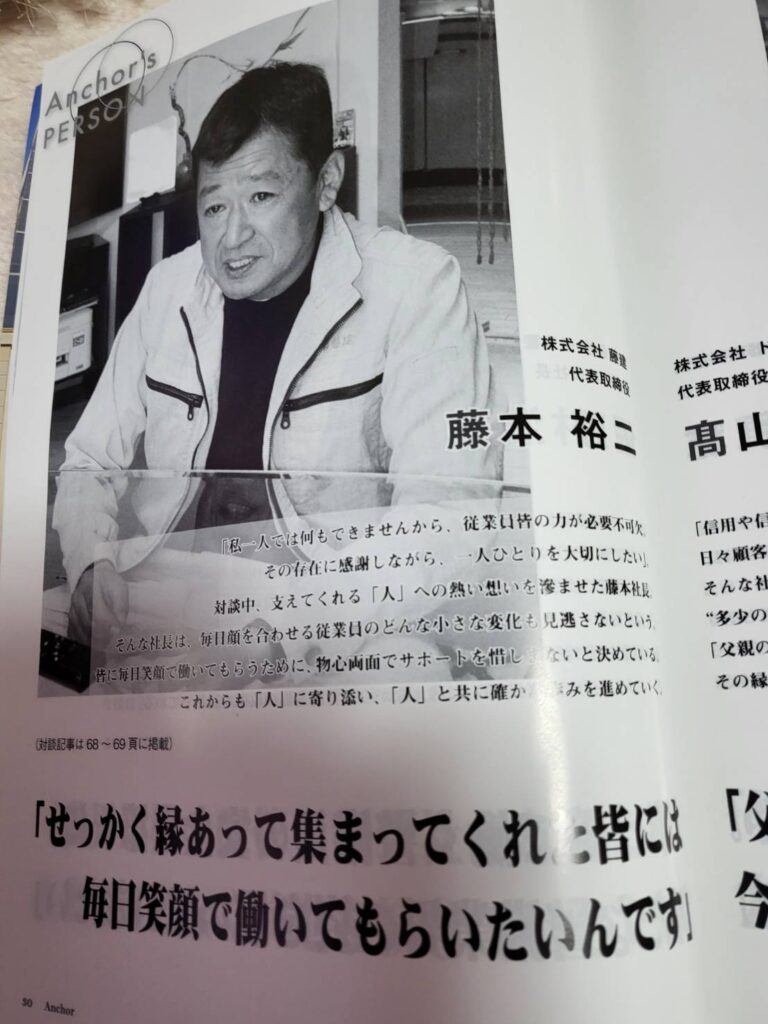 Anchor's
PERSON
株式会社 藤建
代表取締役
藤本 裕二
「私一人では何もできませんから、従業員皆の力が必要不可欠。
その存在に感謝しながら、一人ひとりを大切にしたい」。
対談中、支えてくれる「人」への熱い想いを滲ませた藤本社長。
そんな社長は、毎日顔を合わせる従業員のどんな小さな変化も見逃さないという。
皆に毎日笑顔で働いてもらうために、物心両面でサポートを惜しまないと決めている。
これからも「人」に寄り添い、「人」と共に確かな歩みを進めていく。
(対談記事は68～69頁に掲載)
「せっかく縁あって集まってくれた皆には
毎日笑顔で働いてもらいたいんです」
30 Anchor
株式会社 ト
代表取締役
髙山
「信用や信
日々顧客
そんな社
“多少の
「父親の
その縁
「父
今